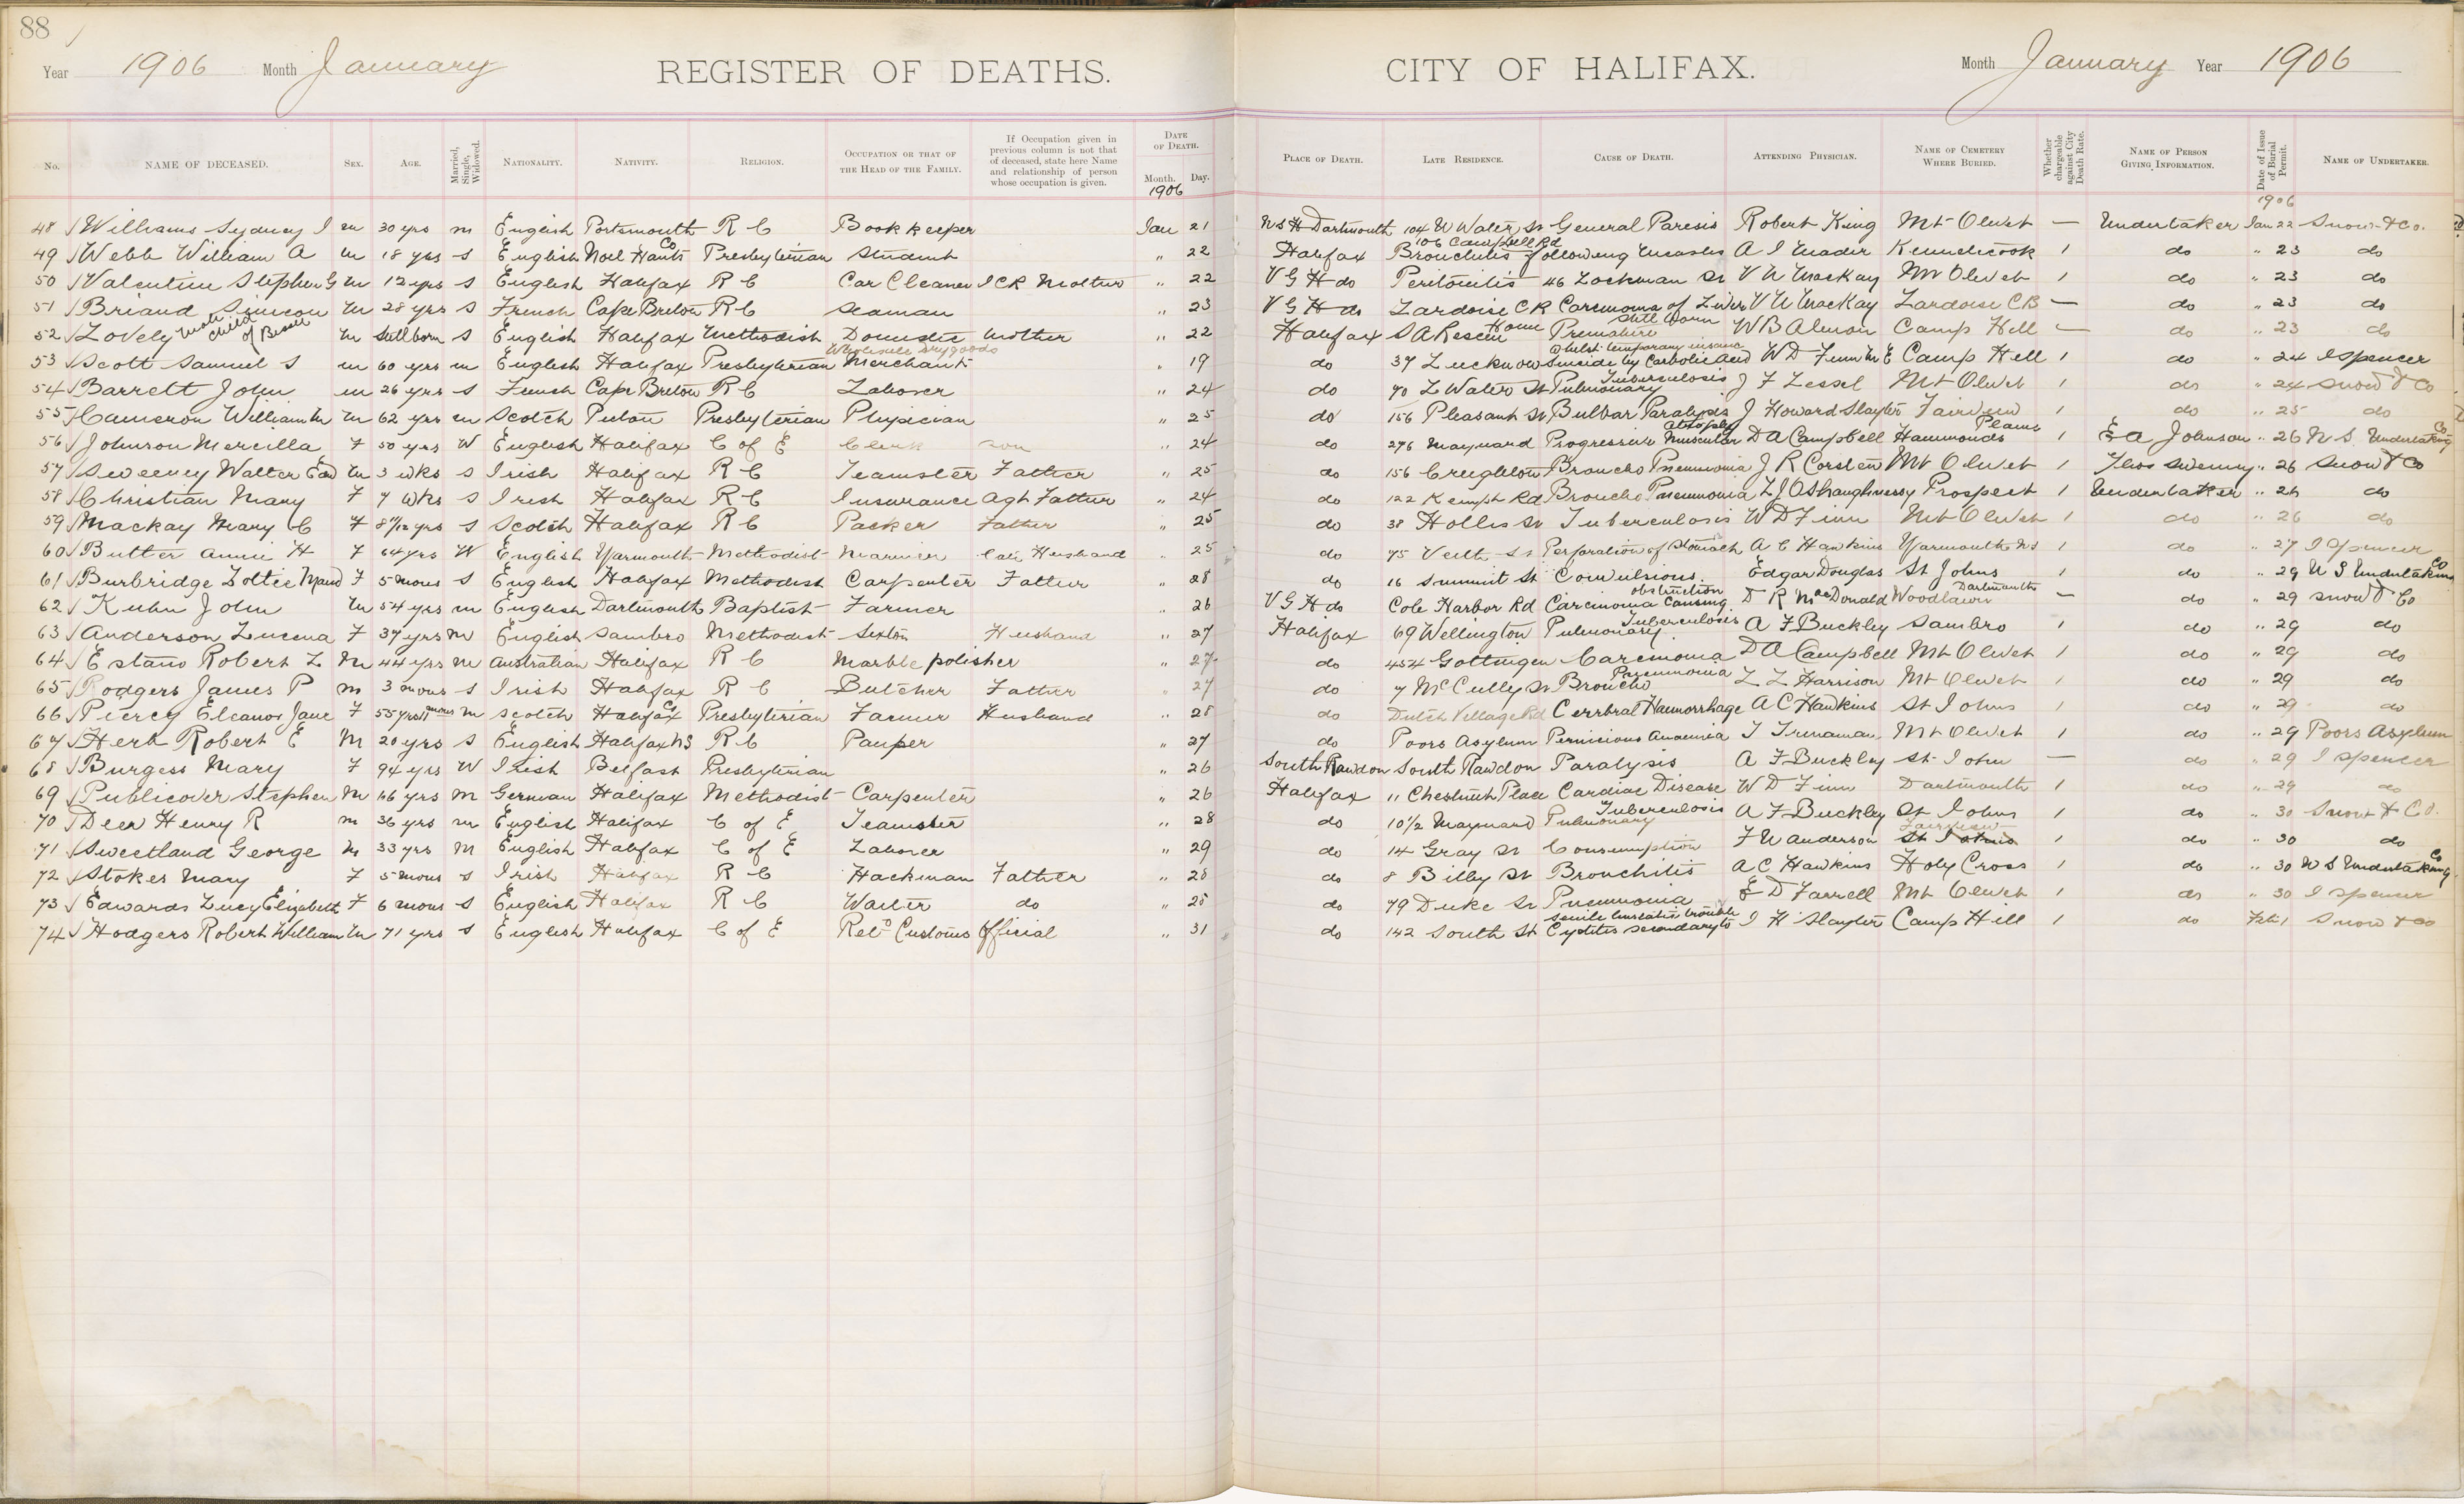 88
Year 1906 Month January REGISTER OF DEATHS. CITY OF HALIFAX. Month January Year 1906
No. NAME OF DECEASED. SEX. AGE. Married, Single, Widowed. NATIONALITY. NATIVITY. RELIGION. OCCUPATION OR THAT OF THE HEAD OF THE FAMILY. If Occupation given in previous column is not that of deceased, state here Name and relationship of person whose occupation is given. DATE OF DEATH. Month. Day. PLACE OF DEATH. LATE RESIDENCE. CAUSE OF DEATH. ATTENDING PHYSICIAN. NAME OF CEMETERY WHERE BURIED. Whether chargeable against City Death Rate. NAME OF PERSON GIVING INFORMATION. Date of Issue of Burial Permit. NAME OF UNDERTAKER.
1906 1906
48 Williams Sydney J m 30 yrs m English Portsmouth R C Bookkeeper Jan 21 N S H Dartmouth 104 U Water St General Paresis Robert King Mt Olivet — Undertaker Jan 22 Snow & Co.
49 Webb William A m 18 yrs s English Noel Hants Co Presbyterian Student " 22 Halifax 106 Campbell Rd Bronchitis following Measles A I Mader Kennetcook 1 do " 23 do
50 Valentine Stephen G m 12 yrs s English Halifax R C Car Cleaner I C R Mother " 22 V G H do Peritonitis 46 Lockman St V N Mackay Mt Olivet 1 do " 23 do
51 Briand Simeon m 28 yrs s French Cape Breton R C Seaman " 23 V G H do Lardoise C B Carcinoma of Liver V N MacKay Lardoise C B — do " 23 do
52 Lovely Male child of Bessie m Stillborn s English Halifax Methodist Domestic Mother " 22 Halifax S A Rescue Home Premature Still born W B Almon Camp Hill — do " 23 do
53 Scott Samuel S m 60 yrs m English Halifax Presbyterian Wholesale Dry goods Merchant " 19 do 37 Lucknow Suicide by Carbolic Acid Whilst temporary insane W D Finn M E Camp Hill 1 do " 24 J Spencer
54 Barrett John m 26 yrs s French Cape Breton R C Laborer " 24 do 90 L Water St Pulmonary Tuberculosis J F Lessel Mt Olivet 1 do " 24 Snow & Co
55 Cameron William M m 62 yrs m Scotch Pictou Presbyterian Physician " 25 do 156 Pleasant St Bulbar Paralysis J Howard Slayter Fairview 1 do " 25 do
56 Johnson Mercilla F 50 yrs W English Halifax C of E Clerk Son " 24 do 276 Maynard Progressive Muscular Atrophy D A Campbell Hammonds Plains 1 E A Johnson " 26 N S Undertaking Co
57 Sweeney Walter Edw m 3 wks s Irish Halifax R C Teamster Father " 25 do 156 Creighton Broncho Pneumonia J R Corston Mt Olivet 1 Thos Sweeney " 26 Snow & Co
58 Christian Mary F 7 wks s Irish Halifax R C Insurance Agt Father " 24 do 122 Kempt Rd Broncho Pneumonia L J OShaughnessy Prospect 1 Undertaker " 26 do
59 Mackay Mary C F 8 7/12 yrs s Scotch Halifax R C Packer Father " 25 do 38 Hollis St Tuberculosis W D Finn Mt Olivet 1 do " 26 do
60 Butler Annie H F 64 yrs W English Yarmouth Methodist Mariner Late Husband " 25 do 75 Veith St Perforation of Stomach A C Hawkins Yarmouth N S 1 do " 27 J Spencer
61 Burbridge Lottie Maud F 5 mons s English Halifax Methodist Carpenter Father " 28 do 16 Summit St Convulsions. Edgar Douglas St Johns 1 do " 29 N S Undertaking Co
62 Kuhn John m 54 yrs m English Dartmouth Baptist Farmer " 26 V G H do Cole Harbor Rd Carcinoma Causing obstruction D R MacDonald Woodlawn Dartmouth — do " 29 Snow & Co
63 Anderson Lucena F 37 yrs M English Sambro Methodist Sexton Husband " 27 Halifax 69 Wellington Pulmonary Tuberculosis A F Buckley Sambro 1 do " 29 do
64 Estano Robert L M 44 yrs m Australian Halifax R C Marble polisher " 27 do 454 Gottingen Carcinoma D A Campbell Mt Olivet 1 do " 29 do
65 Rodgers James P m 3 mons s Irish Halifax R C Butcher Father " 27 do 7 McCully St Broncho Pneumonia L L Harrison Mt Olivet 1 do " 29 do
66 Piercy Eleanor Jane F 55 yrs 11 mons m Scotch Halifax Co Presbyterian Farmer Husband " 28 do Dutch Village Rd Cerrbral Haemorrhage A C Hawkins St Johns 1 do " 29 do
67 Herb Robert E M 20 yrs s English Halifax N S R C Pauper " 27 do Poors Asylum Pernicious Anaemia T Trenaman Mt Olivet 1 do " 29 Poors Asylum
68 Burgess Mary F 94 yrs W Irish Belfast Presbyterian " 26 South Rawdon South Rawdon Paralysis A F Buckley St John — do " 29 J Spencer
69 Publicover Stephen M 66 yrs m German Halifax Methodist Carpenter " 26 Halifax 11 Chestnut Place Cardiac Disease W D Finn Dartmouth 1 do " 29 do
70 Deer Henry R m 36 yrs m English Halifax C of E Teamster " 28 do 10 1/2 Maynard Pulmonary Tuberculosis A F Buckley St Johns 1 do " 30 Snow & Co.
71 Sweetland George M 33 yrs M English Halifax C of E Laborer " 29 do 14 Gray St Consumption F U Anderson St Johns Fairview 1 do " 30 do
72 Stokes Mary F 5 mons s Irish Halifax R C Hackman Father " 28 do 8 Bilby St Bronchitis A C Hawkins Holy Cross 1 do " 30 N S Undertaking Co
73 Edwards Lucy Elizabeth F 6 mons s English Halifax R C Waiter do " 28 do 79 Duke St Pneumonia E D Farrell Mt Olivet 1 do " 30 J Spencer
74 Hodgers Robert William m 71 yrs s English Halifax C of E Retd Customs Official " 31 do 142 South St Cystitis secondary to senile prostatic trouble J H Slayter Camp Hill 1 do Feb 1 Snow & Co